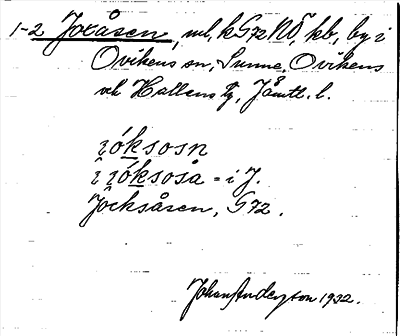 1-2 Joxåsen, ml, k G72 NÖ, kb, by i
Ovikens sn, Sunne, Ovikens
och Hallens tg, Jämtl. l.
ióksosn
î ióksoså = i J.
Jocksåsen, G72.
Johan Anderson 1932.